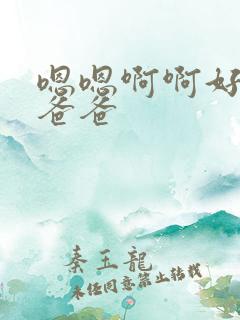 嗯嗯啊啊好
爸爸
秦玉龍
未经同意禁止转载